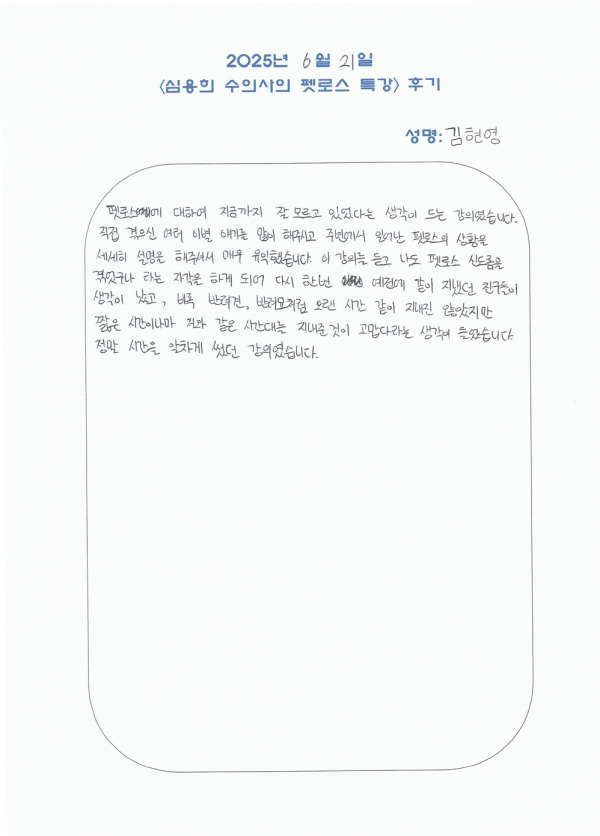 2025년 6월 21일
<심용희 수의사의 펫로스 특강> 후기
성명: 김현영
펫로스에 대하여 지금까지 잘 모르고 있었다는 생각이 드는 강의였습니다.
직접 겪으신 여러 이별 얘기를 많이 해주시고 주변에서 일어난 펫로스의 상황을
세세히 설명을 해주셔서 매우 유익했습니다. 이 강의를 듣고 나도 펫로스 신드롬을
겪었구나 라는 자각을 하게 되어 다시 한번 예전에 같이 지냈던 친구들이
생각이 났고, 비록 반려견, 반려묘처럼 오랜 시간 같이 지내진 않았지만
짧은 시간이나마 저와 같은 시간대를 지내준 것이 고맙다라는 생각이 들었습니다.
정말 시간을 알차게 썼던 강의였습니다.